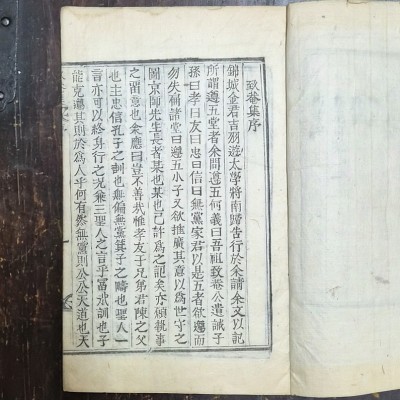 致菴集序
錦城金君吉羽遊太學將南歸告行於余請余文以記
所謂遵五堂者余問遵五何義曰吾祖致菴公遺誡子
孫曰孝曰友曰忠曰信曰無黨家君以是五者欲遵而
勿失稱諸堂曰遵五小子又欲推廣其意以爲世守之
圖京師先生長者某也某也已許爲之記矣亦願執事
之留意也余應曰豈不善哉惟孝友于兄弟君陳之父
也主忠信孔子之訓也無偏無黨箕子之疇也聖人一
言亦可以終身行之况兼三聖人之言乎當永訓也子
能克遵其則於爲人乎何有然無黨則公公天道也天